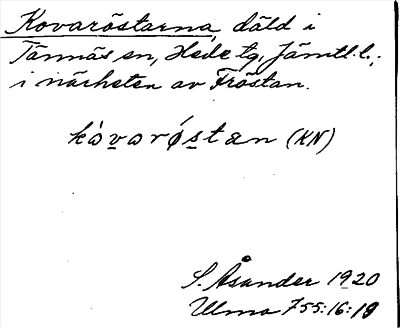 Kovaröstarna, däld i
Tännäs sn, Hede tg, Jämtl. l.,
i närheten av Fröstan.
kòvarǿstan (KN)
S. Åsander 1920
Ulma 755:16:19